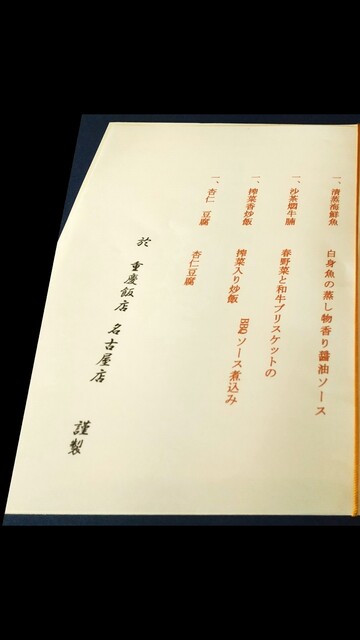 一、清蒸海鮮魚　白身魚の蒸し物香り醤油ソース
一、沙茶燜牛腩　春野菜と和牛ブリスケットの
BBQソース煮込み
一、搾菜香炒飯　搾菜入り炒飯
一、杏仁豆腐　杏仁豆腐
於　重慶飯店　名古屋店　謹製